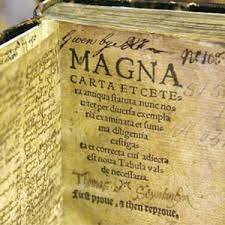 Given by
MAGNA
CARTA ET CETE
ra antiqua statuta nunc no
uiter per diuersa exempla
ria examinata et sum
ma diligentia
castiga
ta et correcta cui adiecta
est noua Tabula val
de necessaria.
Thomas
First proue, & then reproue,